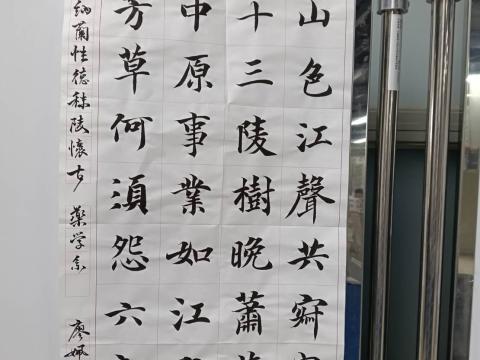 山色江聲共寂
十三陵樹晚蕭
中原事業如江
芳草何須怨六
納蘭性德秣陵懷古 藥学系 廖姵